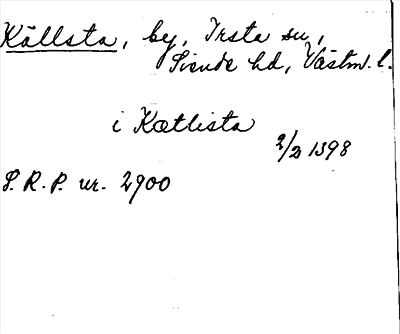 Källsta, by, Irsta sn,
Siende hd, Västm. l.
i Kætlista
2/2 1398
S.R.P. nr. 2900